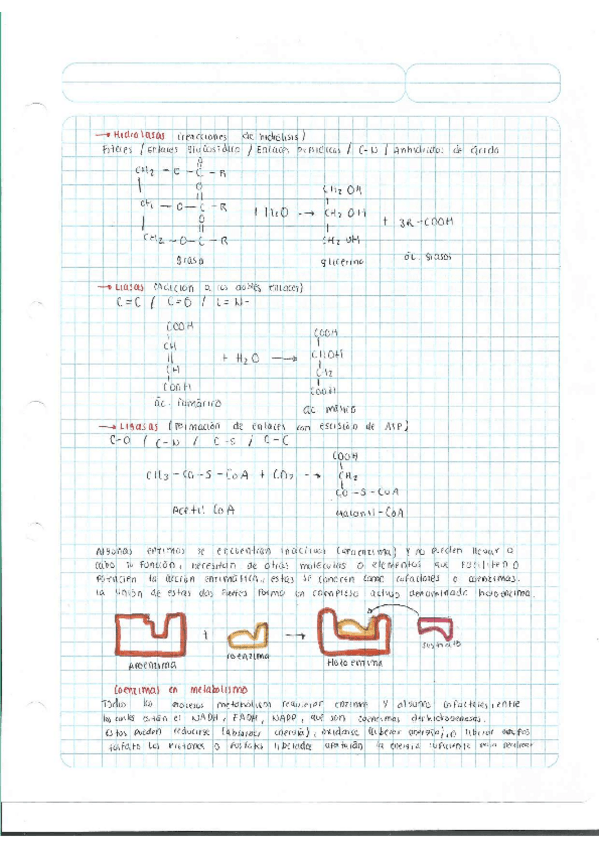 → Hidrolasas (reacciones de hidrólisis)
Esteres / Enlaces Glucosídico / Enlaces peptídicos / C-N / Anhidridos de ácido
CH2 - O - C - R
O
CH - O - C - R + H2O → CH2 OH
O
CH2 OH + 3R - COOH
CH2 - O - C - R
CH2 OH
grasa
glicerina
ác. grasos
→ Liasas (Adición a los dobles enlaces)
C=C / C=O / C=N-
COOH
CH
CH
COOH
+ H2O →
COOH
CHOH
CH2
COOH
ác. fumárico
ác málico
→ Ligasas (formación de enlaces con escisión de ATP)
C-O / C-N / C-S / C-C
CH3 - CO - S - CoA + CO2 →
COOH
CH2
CO - S - CoA
Acetil CoA
Malonil - CoA
Algunas enzimas se encuentran inactivas (apoenzima) y no pueden llevar a
cabo su función, necesitan de otras moléculas o elementos que faciliten o
potencien la acción enzimática, estas se conocen como cofactores o coenzimas.
La unión de estas dos partes forma un complejo activo denominado holoenzima.
+ →
Apoenzima
coenzima
Holo enzima
sustrato
Coenzimas en metabolismo
Todos los procesos metabólicos requieren enzimas y algunos cofactores, entre
los cuales están el NADH, FADH, NADP, que son coenzimas deshidrogenasas.
Estos pueden reducirse (absorber energía), oxidarse (liberar energía), o liberar grupos
fosfato los protones o fosfatos liberados aportarán la energía suficiente para